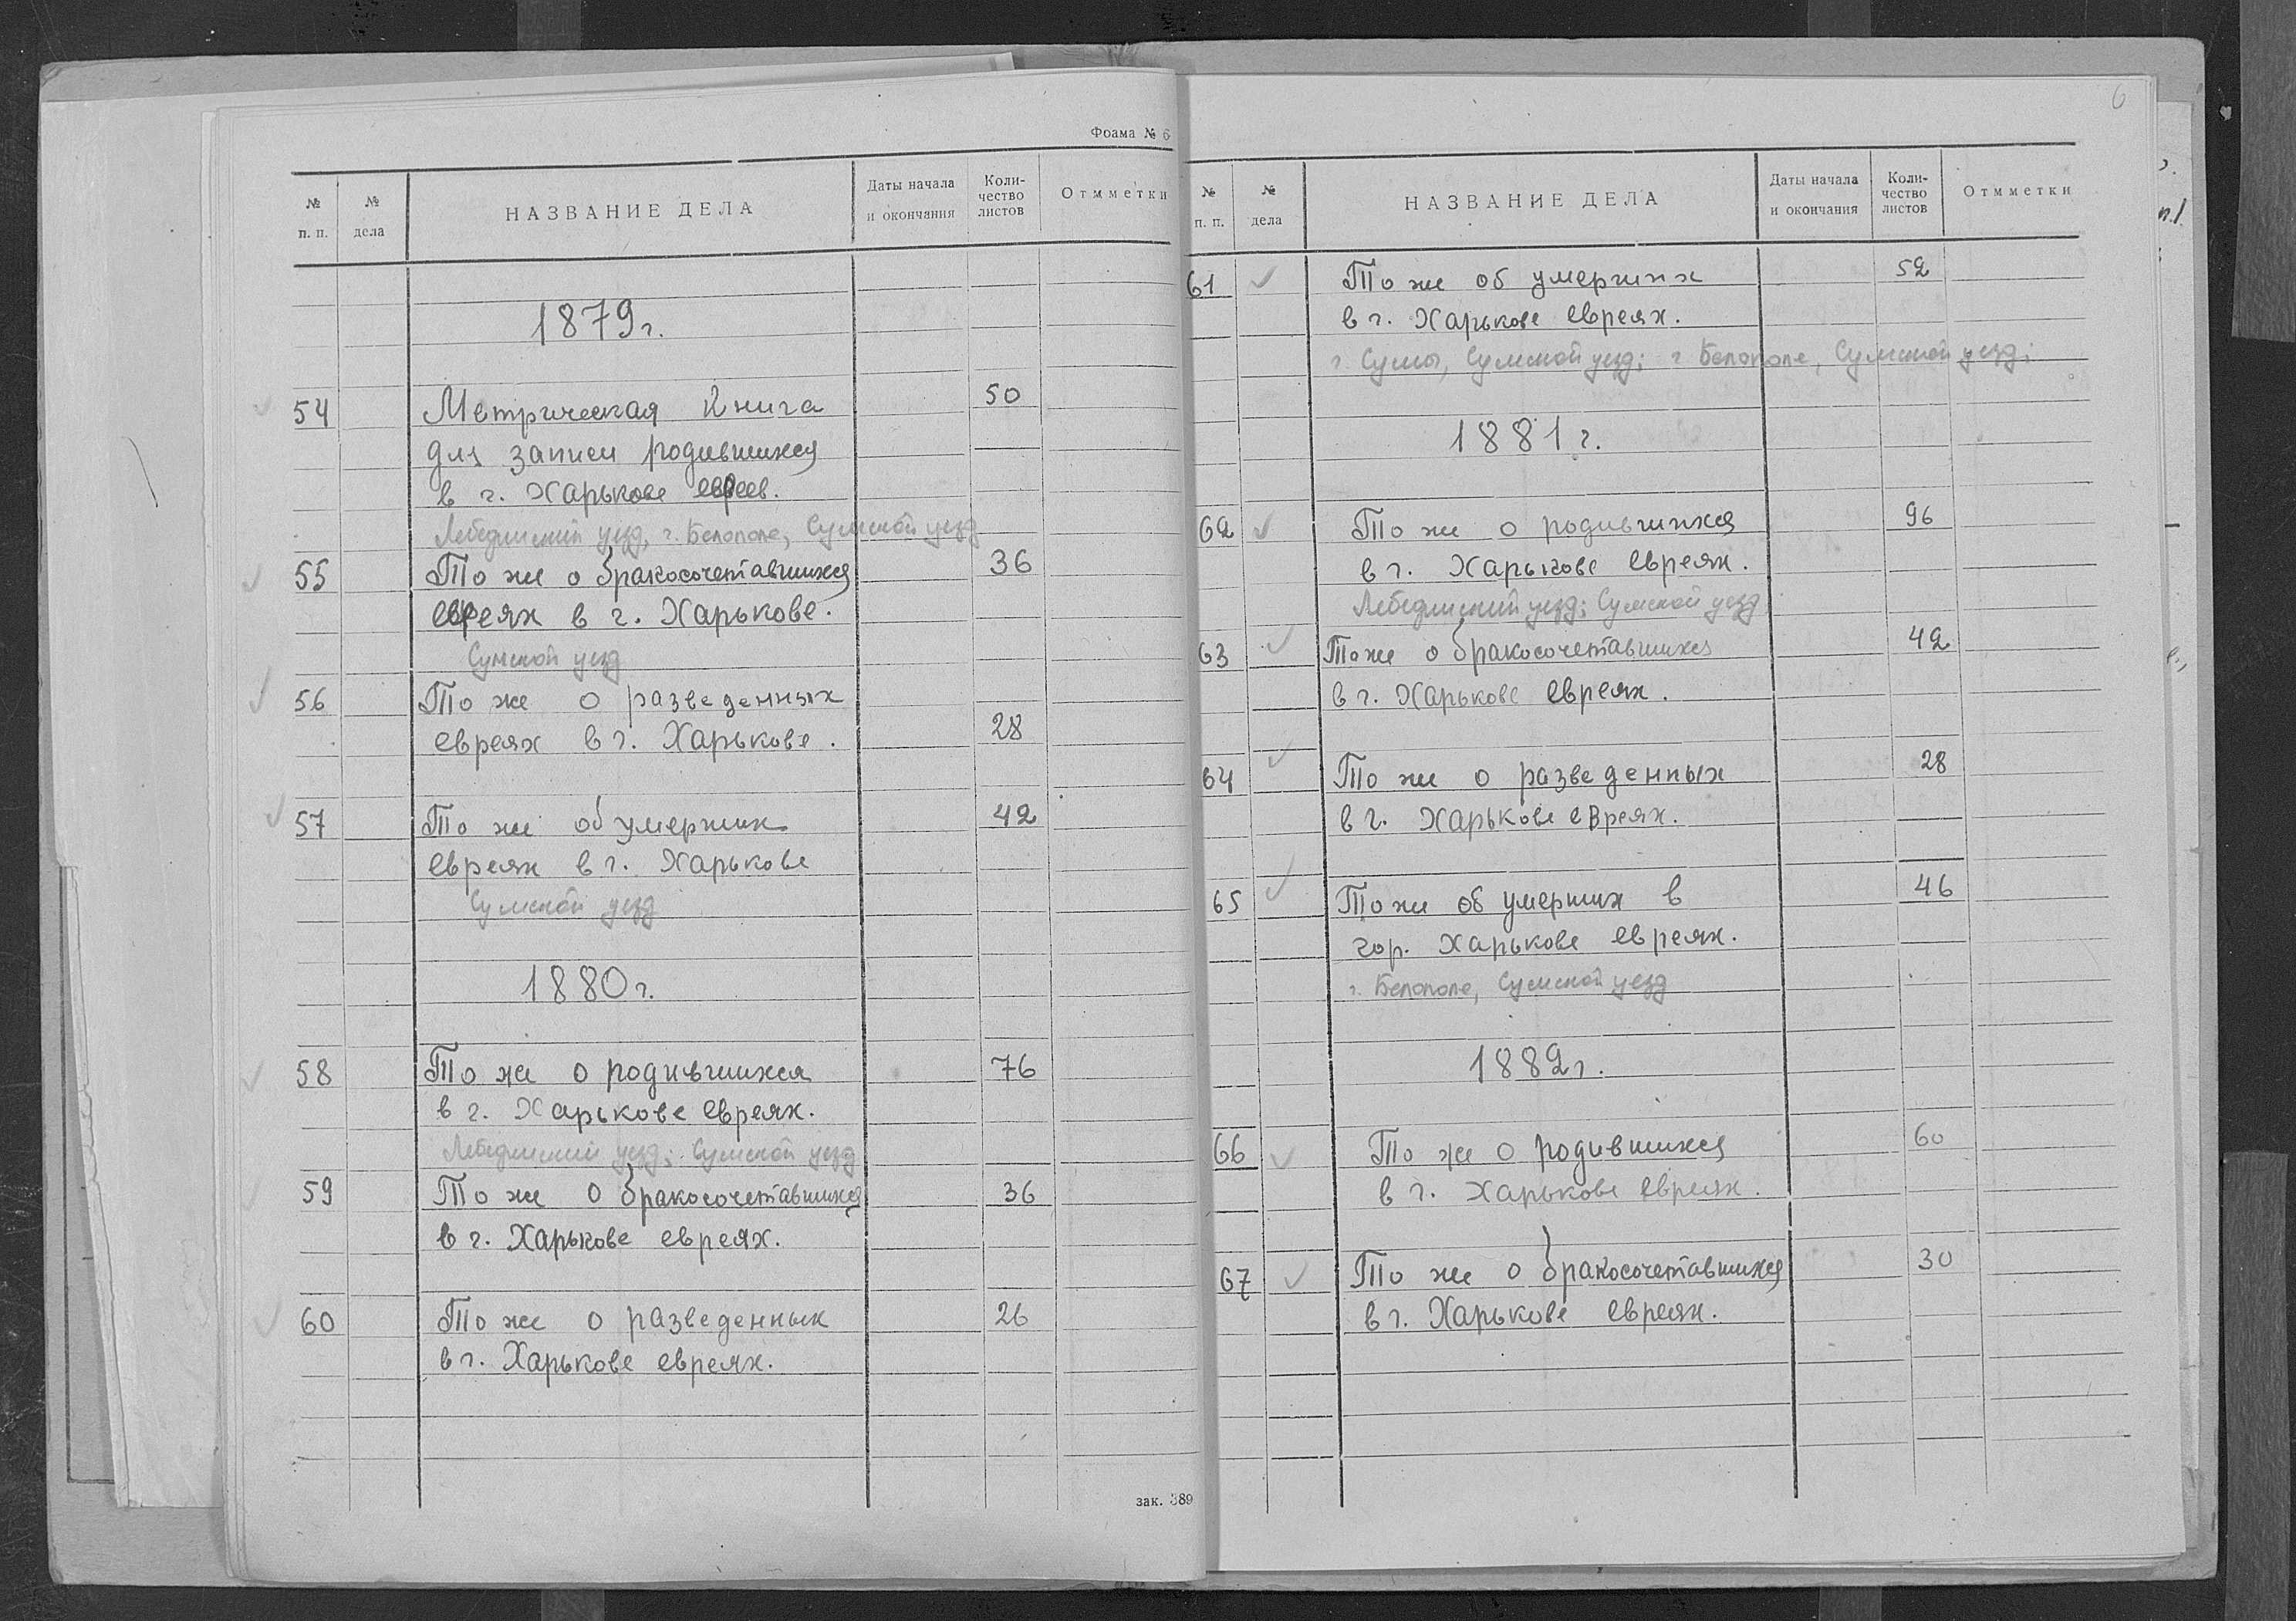 Фоама № 6
№ п. п.
№ дела
НАЗВАНИЕ ДЕЛА
Даты начала и окончания
Коли-чество листов
Отмметки
1879 г.
54 Метрическая Книга 50
для записи родившихся
в г. Харькове евреев.
Лебединский уезд, г. Белополе, Сумской уезд
55 То же о бракосочетавшихся 36
евреях в г. Харькове.
Сумской уезд
56 То же о разведенных
евреях в г. Харькове. 28
57 То же об умерших 42
евреях в г. Харькове
Сумской уезд
1880 г.
58 То же о родившихся 76
в г. Харькове евреях.
Лебединский уезд; Сумской уезд
59 То же о бракосочетавшихся 36
в г. Харькове евреях.
60 То же о разведенных 26
в г. Харькове евреях.
зак. 389
6
№ п. п.
№ дела
НАЗВАНИЕ ДЕЛА
Даты начала и окончания
Коли-чество листов
Отмметки
61 То же об умерших 52
в г. Харькове евреях.
г. Сумы, Сумской уезд; г. Белополе, Сумской уезд;
1881 г.
62 То же о родившихся 96
в г. Харькове евреях.
Лебединский уезд; Сумской уезд
63 То же о бракосочетавшихся 42
в г. Харькове евреях.
64 То же о разведенных 28
в г. Харькове евреях.
65 То же об умерших в 46
гор. Харькове евреях.
г. Белополе, Сумской уезд
1882 г.
66 То же о родившихся 60
в г. Харькове евреях.
67 То же о бракосочетавшихся 30
в г. Харькове евреях.